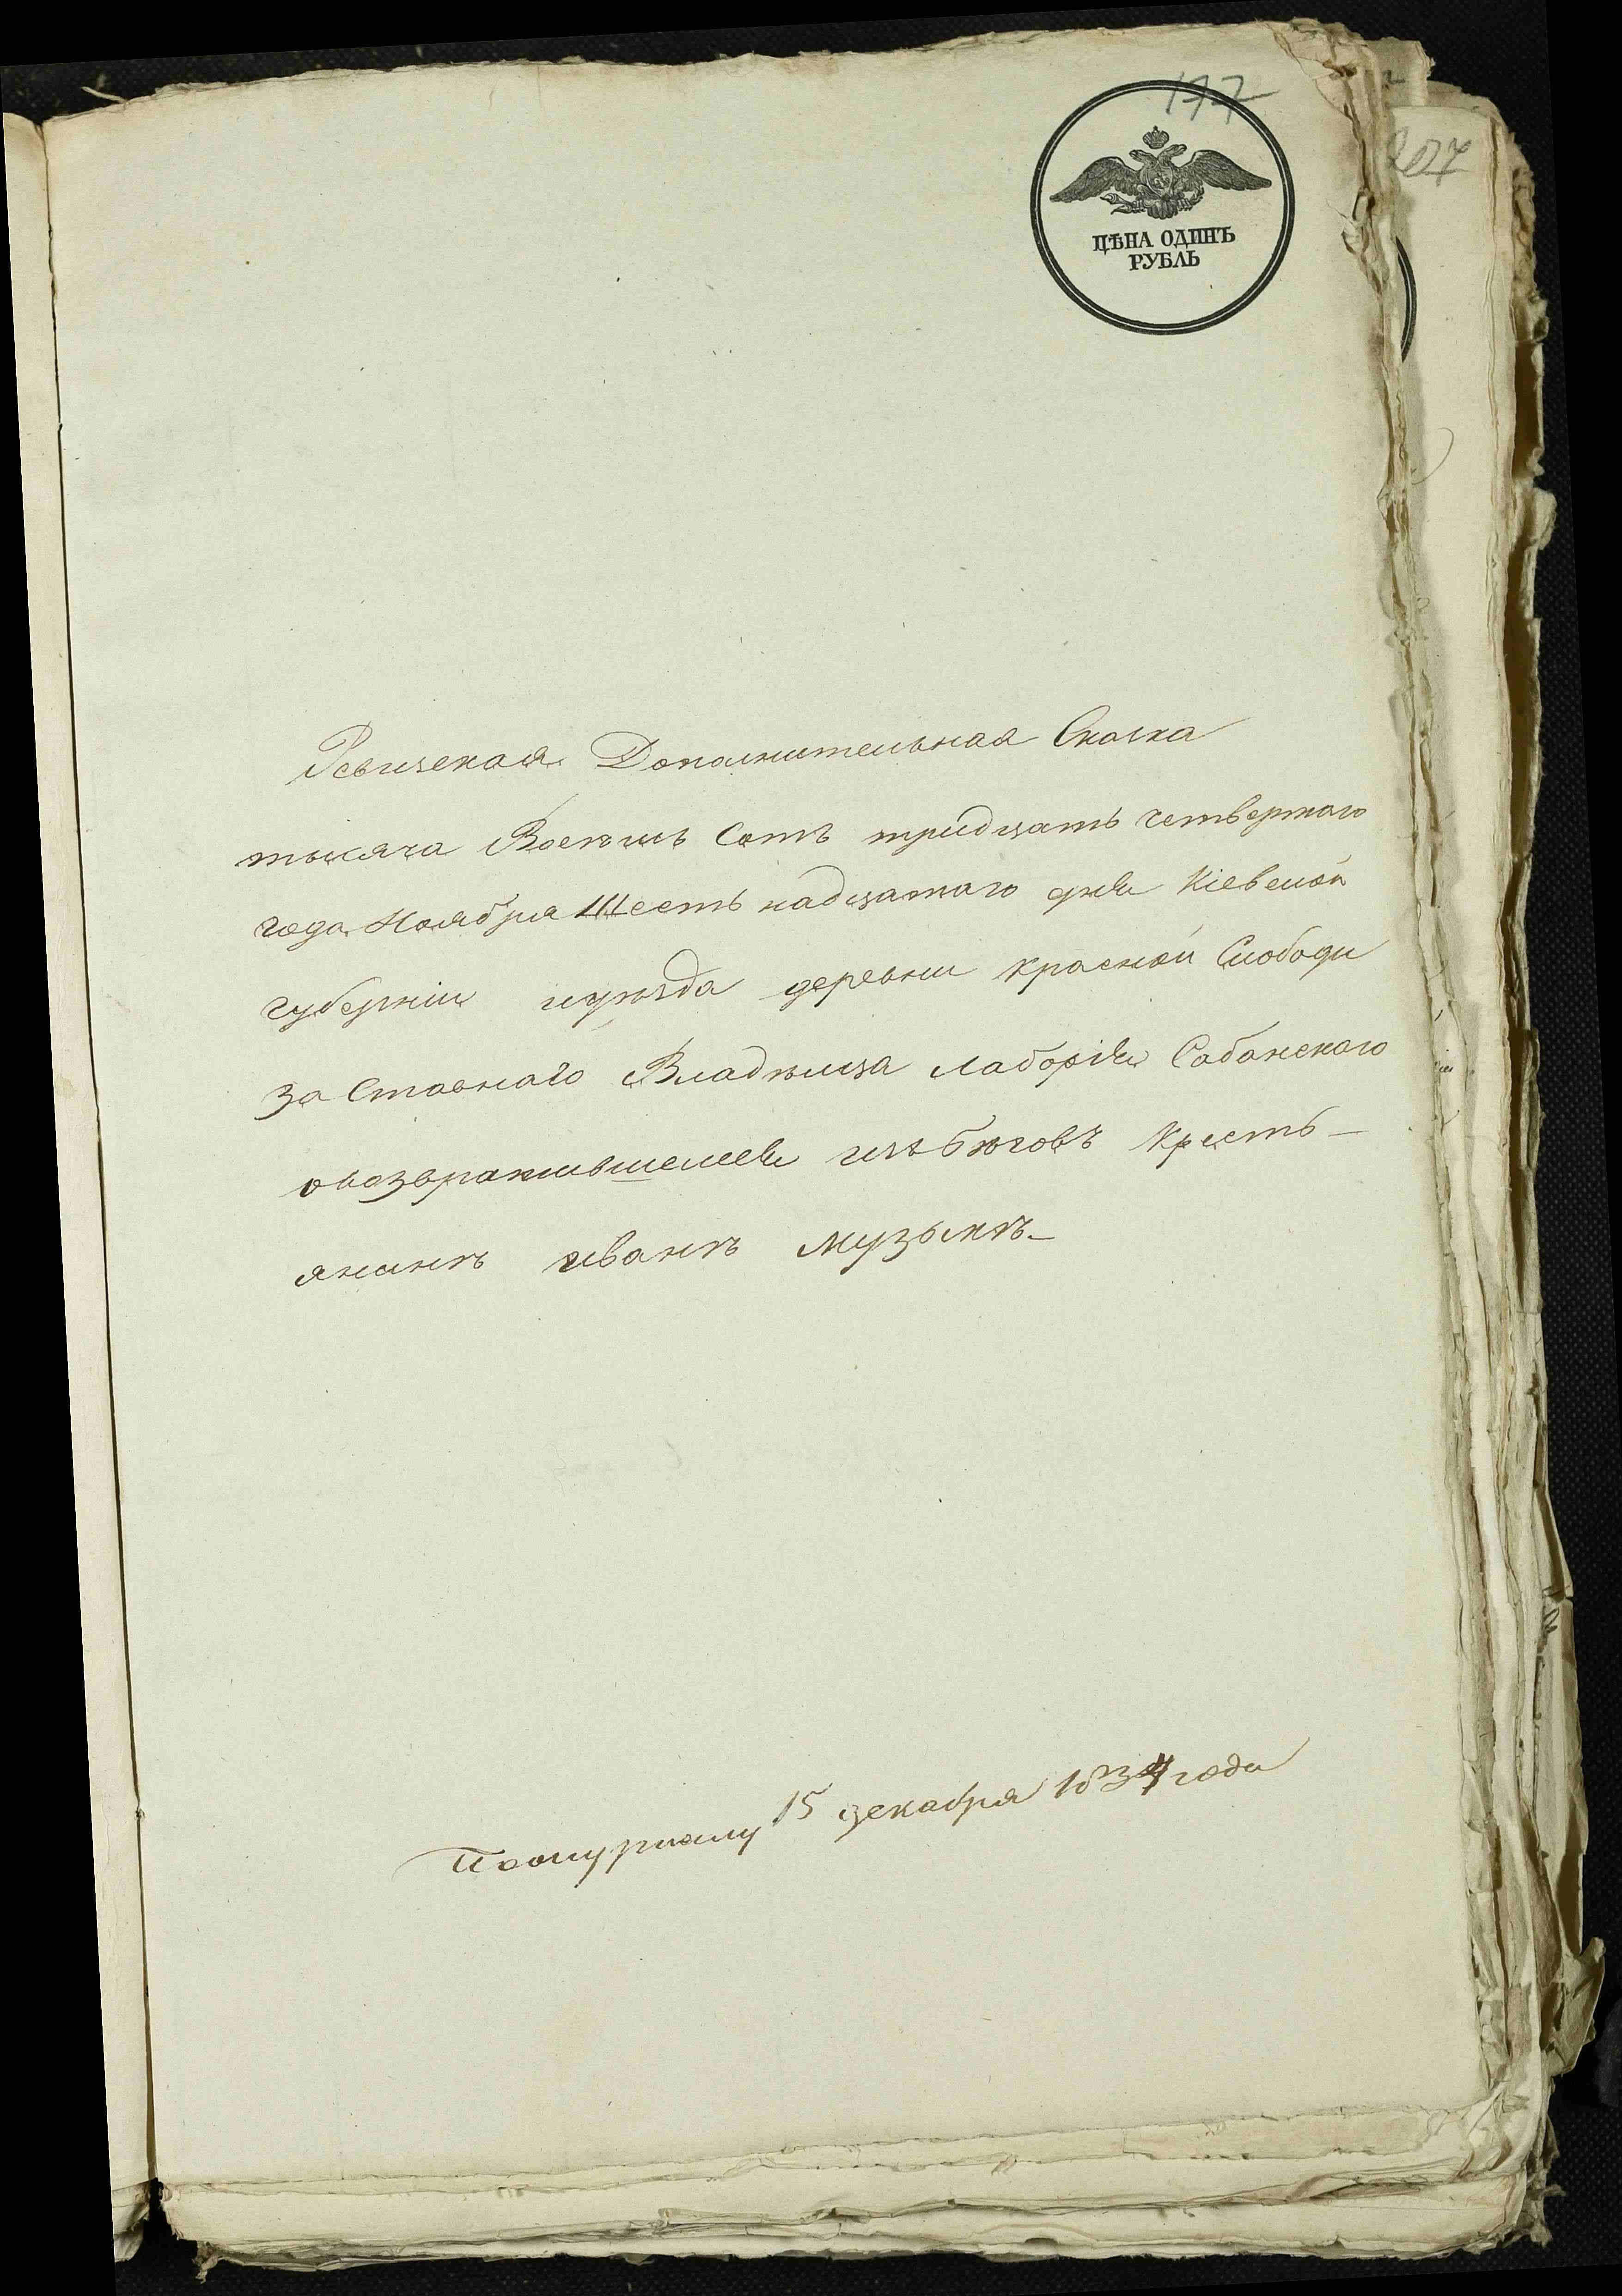 177
207
ЦѢНА ОДИНЪ
РУБЛЬ
Ревизская Дополнительная Сказка
тысяча Восемь Сотъ тридцать четвертаго
года Ноября Шестьнадцатаго дня Кіевской
губерніи иуѣзда деревни Красной Слободи
за Ставнаго Владѣльца Сабанскаго
овозвратившемся изъ бѣговъ Кресть-
янинѣ иванѣ музыкѣ
15 декабря 1834 года